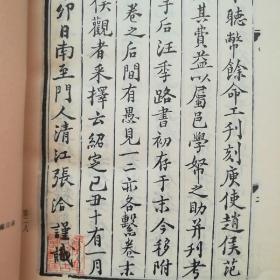 聽幣餘命工刊刻庾使趙侯范
其費益以屬邑學帑之助并刊考
子后汪季路書初存于末今移附
卷之后間有愚見一二亦各繫卷末
侯觀者采擇云紹定己丑十有一月
卯日南至門人清江張洽謹識